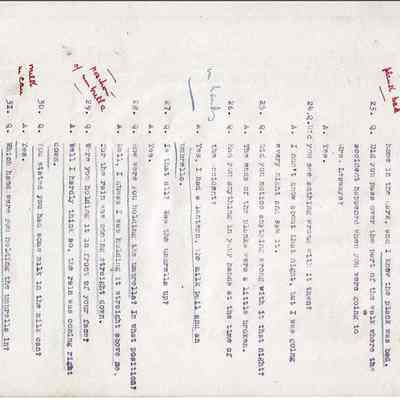 plank bad
home in the dray and I knew the plank was bad.
23. Q. Did you pass over the part of the walk where the
accident happened when you were going to
Mrs.
A. Yes.
24. Q. Did you see anything wrong with it then?
A. I don't know about that night, but I was going
every night and saw it.
25. Q. Did you notice anything wrong with it that night?
A. The ends of the planks were a little broken.
26. Q. Had you anything in your hands at the time of
the accident?
in hands
A. Yes, I had a lantern, the milk pail and an
umbrella.
27. Q. Is that all? Was the umbrella up?
A. Yes.
28. Q. How were you holding the umbrella? In what position?
A. Well, I guess I was holding it straight above me
for the rain was coming straight down.
position
of umbrella
29. Q. Were you holding it in front of your face?
A. Well I hardly think so, the rain was coming right
down.
milk
in can
30. Q. You stated you had some milk in the milk can?
A. Yes.
31. Q. Which hand were you holding the umbrella in?